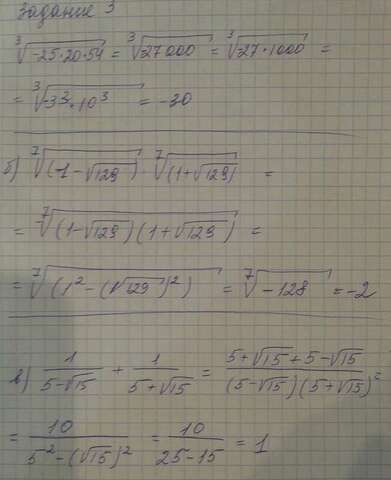 Задание 3
∛(-25·20·54) = ∛(27000) = ∛(27·1000) =
= ∛(-3³·10³) = -30
б) ⁷√(-1-√129) · ⁷√(1+√129) =
= ⁷√((1-√129)(1+√129)) =
= ⁷√(1²-(√129)²) = ⁷√(-128) = -2
в) 1/(5-√15) + 1/(5+√15) = (5+√15+5-√15)/((5-√15)(5+√15)) =
= 10/(5²-(√15)²) = 10/(25-15) = 1